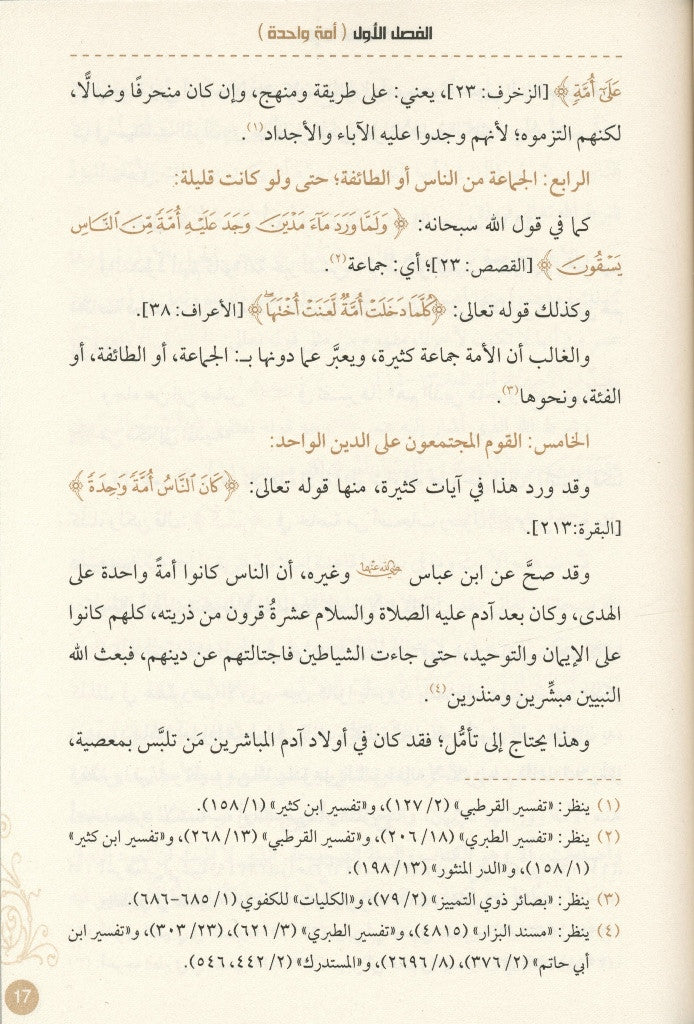 الفصل الأول ( أمة واحدة )
عَلَىٰٓ أُمَّةٍ ﴾ [الزخرف: ٢٣]، يعني: على طريقة ومنهج، وإن كان منحرفًا وضالًّا،
لكنهم التزموه؛ لأنهم وجدوا عليه الآباء والأجداد(١).
الرابع: الجماعة من الناس أو الطائفة؛ حتى ولو كانت قليلة:
كما في قول الله سبحانه: ﴿ وَلَمَّا وَرَدَ مَآءَ مَدْيَنَ وَجَدَ عَلَيْهِ أُمَّةً مِّنَ ٱلنَّاسِ
يَسْقُونَ ﴾ [القصص: ٢٣]؛ أي: جماعة(٢).
وكذلك قوله تعالى: ﴿كُلَّمَا دَخَلَتْ أُمَّةٌ لَّعَنَتْ أُخْتَهَا ۖ﴾ [الأعراف: ٣٨].
والغالب أن الأمة جماعة كثيرة، ويعبَّر عما دونها بـ: الجماعة، أو الطائفة، أو
الفئة، ونحوها(٣).
الخامس: القوم المجتمعون على الدين الواحد:
وقد ورد هذا في آيات كثيرة، منها قوله تعالى: ﴿كَانَ ٱلنَّاسُ أُمَّةً وَٰحِدَةً ﴾
[البقرة:٢١٣].
وقد صحَّ عن ابن عباس رضي الله عنهما وغيره، أن الناس كانوا أمةً واحدة على
الهدى، وكان بعد آدم عليه الصلاة والسلام عشرةُ قرون من ذريته، كلهم كانوا
على الإيمان والتوحيد، حتى جاءت الشياطين فاجتالتهم عن دينهم، فبعث الله
النبيين مبشِّرين ومنذرين(٤).
وهذا يحتاج إلى تأمُّل؛ فقد كان في أولاد آدم المباشرين مَن تلبَّس بمعصية،
(١) ينظر: «تفسير القرطبي» (٢/ ١٢٧)، و«تفسير ابن كثير» (١/ ١٥٨).
(٢) ينظر: «تفسير الطبري» (١٨/ ٢٠٦)، و«تفسير القرطبي» (١٣/ ٢٦٨)، و«تفسير ابن كثير»
(١/ ١٥٨)، و«الدر المنثور» (١٣/ ١٩٨).
(٣) ينظر: «بصائر ذوي التمييز» (٢/ ٧٩)، و«الكليات» للكفوي (١/ ٦٨٥-٦٨٦).
(٤) ينظر: «مسند البزار» (٤٨١٥)، و«تفسير الطبري» (٣/ ٦٢١)، (٢٣/ ٣٠٣)، و«تفسير ابن
أبي حاتم» (٢/ ٣٧٦)، (٨/ ٢٦٩٦)، و«المستدرك» (٢/ ٤٤٢، ٥٤٦).
17